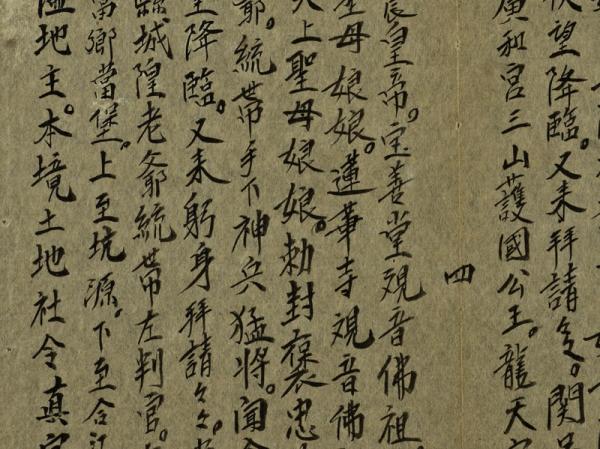 伏望降臨。又来拜請々。関
廣和宮三山護國公王。龍天
四
宸皇帝。宝善堂观音佛祖
聖母娘娘。蓮華寺观音佛
天上聖母娘娘。勅封褒忠
爺。統带手下神兵猛將。聞
降臨。又来躬身拜請々々。
縣城隍老爺統带左判官。
當鄉當堡。上至坑源。下至合江
隘地主。本境土地社令真官